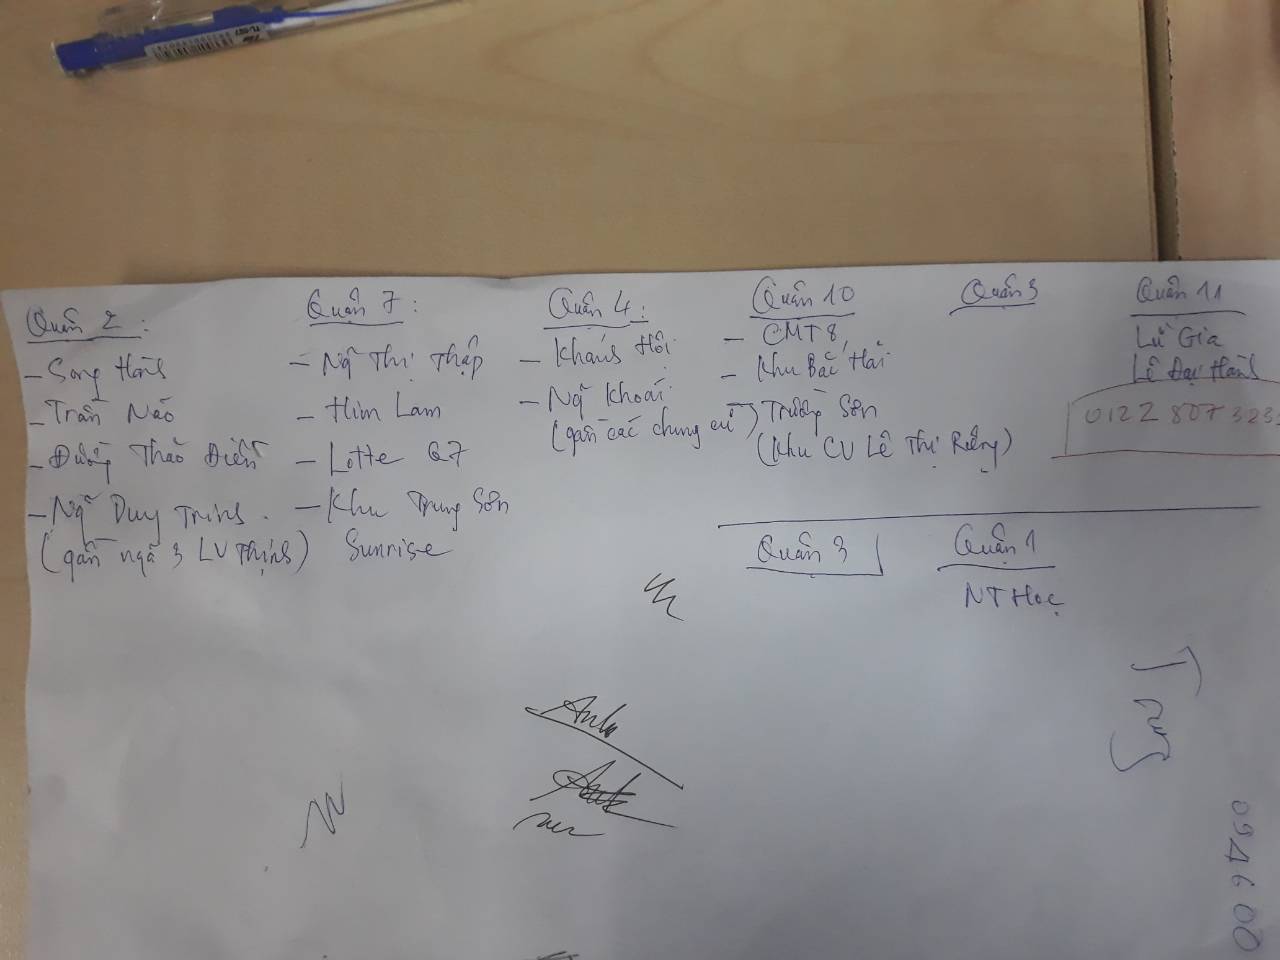 Quận 2 :
- Song Hành
- Trần Não
- Đường Thảo Điền
- Ng~ Duy Trinh.
(gần ngã 3 LV Thịnh)
Quận 7 :
- Ng~ Thị Thập
- Him Lam
- Lotte Q7
- Khu Trung Sơn
Sunrise
Quận 4 :
- Khánh Hội
- Ng~ Khoái
(gần các chung cư)
Quận 10
- CMT8,
- Khu Bắc Hải
Trường Sơn
(Khu CV Lê Thị Riêng)
Quận 11
Lữ Gia
Lê Đại Hành
0122 807 323
Quận 3
Quận 1
NT Học
Anh
094600